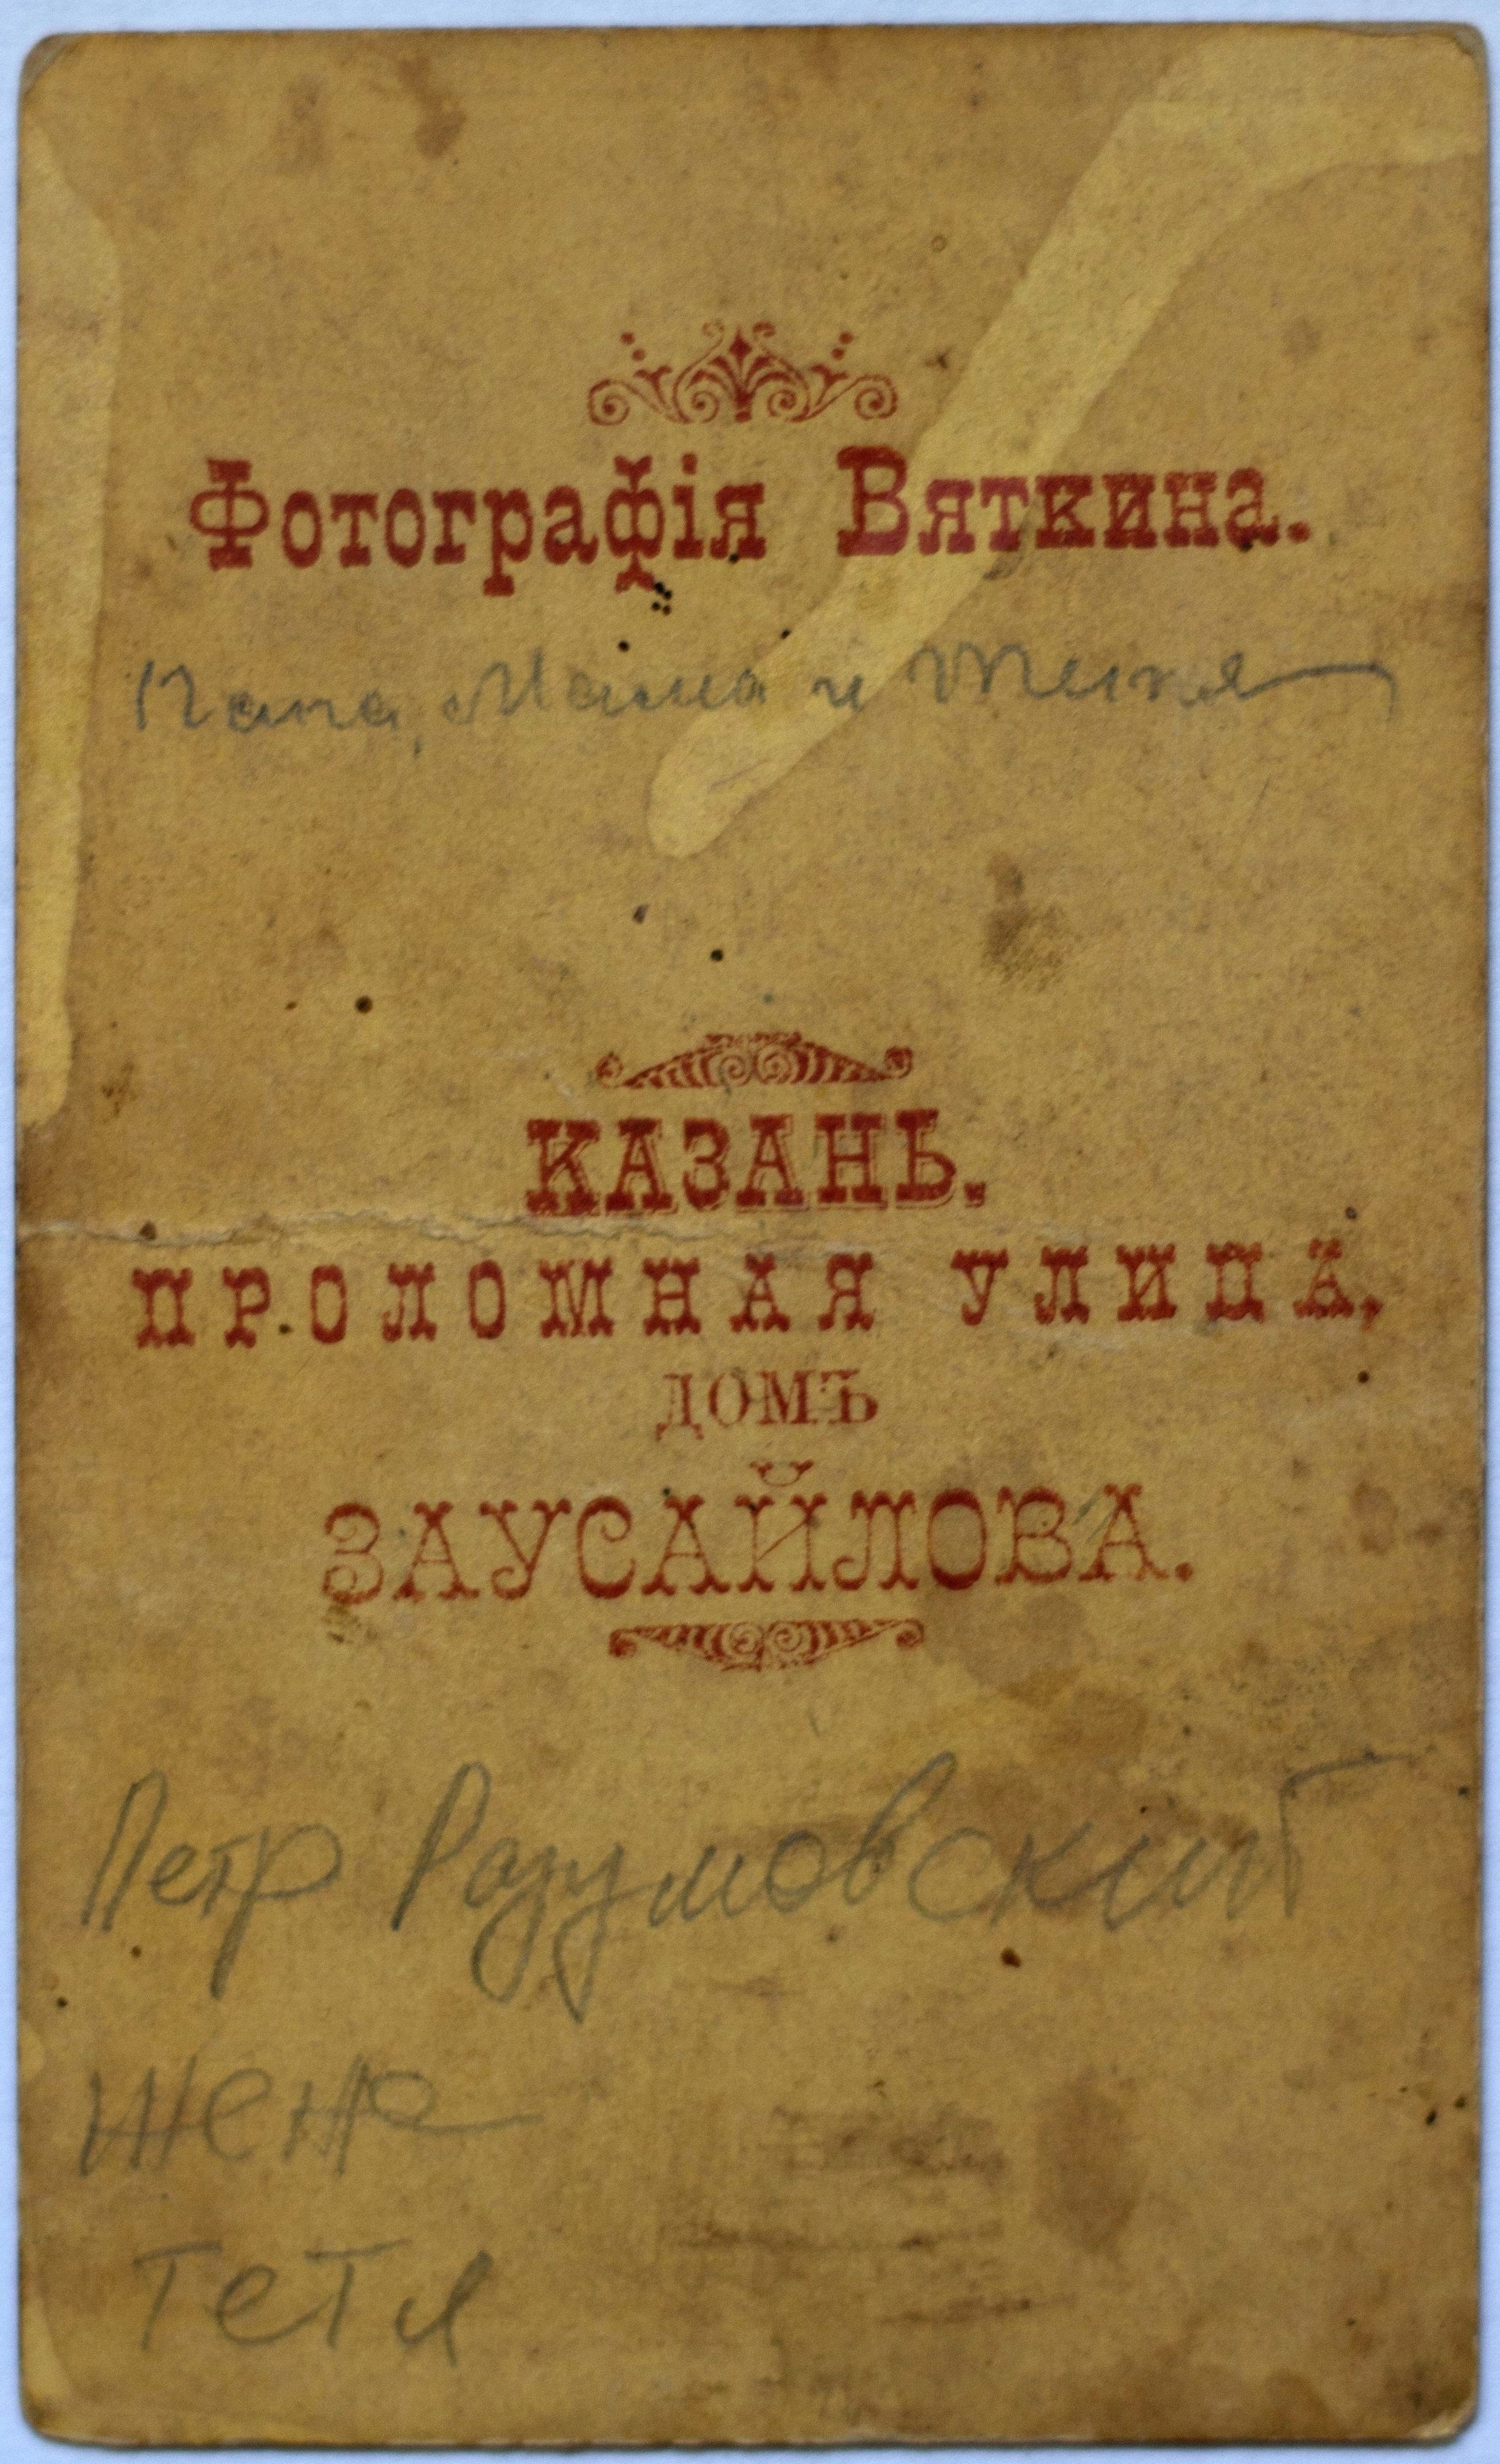 Фотографія Вяткина.
Папа, Мама и
КАЗАНЬ.
ПРОЛОМНАЯ УЛИЦА,
ДОМЪ
ЗАУСАЙЛОВА.
Петр Разумовский
жена
тетя